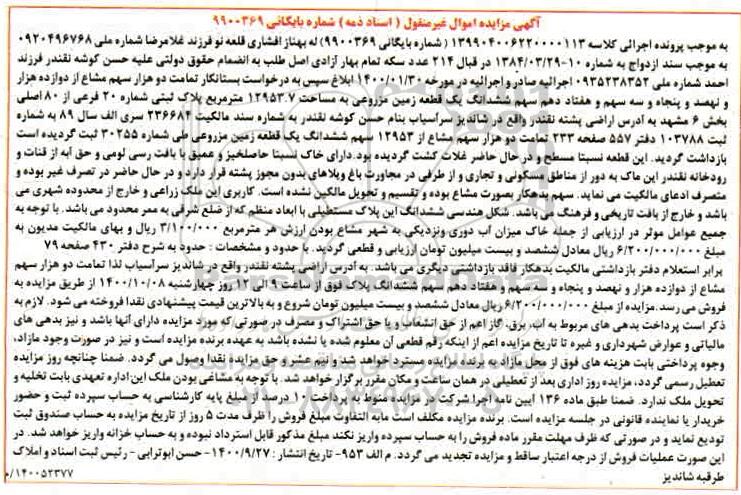 آگهی مزایده اموال غیرمنقول ( اسناد ذمه) شماره بایگانی ۹۹۰۰۳۶۹
به موجب پرونده اجرائی کلاسه ۱۳۹۹۰۴۰۰۶۲۲۰۰۰۰۱۱۳ ( شماره بایگانی ۹۹۰۰۳۶۹) له بهناز افشاری قلعه نو فرزند غلامرضا شماره ملی ۰۹۲۰۴۹۶۷۶۸
به موجب سند ازدواج به شماره ۱۰-۱۳۸۴/۰۳/۲۹ در قبال ۲۱۴ عدد سکه تمام بهار آزادی اصل طلب به انضمام حقوق دولتی علیه حسن گوشه نقندر فرزند
احمد شماره ملی ۰۹۳۵۲۳۸۳۵۲ اجرائیه صادر و اجرائیه در مورخه ۱۴۰۰/۰۱/۳۰ ابلاغ سپس به درخواست بستانکار تمامت دو هزار سهم مشاع از دوازده هزار
و نهصد و پنجاه و سه سهم و هفتاد دهم سهم ششدانگ یک قطعه زمین مزروعی به مساحت ۱۲۹۵۳.۷ مترمربع پلاک ثبتی شماره ۲۰ فرعی از ۸۰ اصلی
بخش ۶ مشهد به آدرس اراضی پشته نقندر واقع در شاندیز سرآسیاب بنام حسن گوشه نقندر به شماره سند مالکیت ۲۳۶۶۸۴ سری الف سال ۸۹ به شماره
ثبت ۱۰۳۷۸۸ دفتر ۵۵۷ صفحه ۲۳۳ تمامت دو هزار سهم مشاع از ۱۲۹۵۳ سهم ششدانگ یک قطعه زمین مزروعی طی شماره ۳۰۲۵۵ ثبت گردیده است
بازداشت گردید. این قطعه نسبتا مسطح و در حال حاضر غلات کشت گردیده بود.دارای خاک نسبتا حاصلخیز و عمیق با بافت رسی لومی و حق آبه از قنات و
رودخانه نقندر این ماک به دور از مناطق مسکونی و تجاری و از طرفی در مجاورت باغ ویلاهای بدون مجوز پشته قرار دارد و در حال حاضر در تصرف غیر بوده و
متصرف ادعای مالکیت می نماید. سهم بدهکار بصورت مشاع بوده و تقسیم و تحویل مالکین نشده است. کاربری این ملک زراعی و خارج از محدوده شهری می
باشد و خارج از بافت تاریخی و فرهنگ می باشد. شکل هندسی ششدانگ این پلاک مستطیلی با ابعاد منظم که از ضلع شرقی به معبر محدود می باشد. با توجه به
جمیع عوامل موثر در ارزیابی از جمله خاک میزان آب دوری ونزدیکی به شهر مشاع بودن ارزش هر مترمربع ۳/۱۰۰/۰۰۰ ریال و بهای مالکیت مدیون به
مبلغ ۶/۲۰۰/۰۰۰/۰۰۰ ریال معادل ششصد و بیست میلیون تومان ارزیابی و قطعی گردید. با حدود و مشخصات : حدود به شرح دفتر ۴۳۰ صفحه ۷۹
برابر استعلام دفتر بازداشتی مالکیت بدهکار فاقد بازداشتی دیگری می باشد. به آدرس اراضی پشته نقندر واقع در شاندیز سرآسیاب لذا تمامت دو هزار سهم
مشاع از دوازده هزار و نهصد و پنجاه و سه سهم و هفتاد دهم سهم ششدانگ پلاک فوق از ساعت ۹ الی ۱۲ روز چهارشنبه ۱۴۰۰/۱۰/۰۸ از طریق مزایده به
فروش می رسد.مزایده از مبلغ ۶/۲۰۰/۰۰۰/۰۰۰ ریال معادل ششصد و بیست میلیون تومان شروع و به بالاترین قیمت پیشنهادی نقدا فروخته می شود. لازم به
ذکر است پرداخت بدهی های مربوط به آب، برق، گاز اعم از حق انشعاب و یا حق اشتراک و مصرف در صورتی که مورد مزایده دارای آنها باشد و نیز بدهی های
مالیاتی و عوارض شهرداری و غیره تا تاریخ مزایده اعم از اینکه رقم قطعی آن معلوم شده یا نشده باشد به عهده برنده مزایده است و نیز در صورت وجود مازاد،
وجوه پرداختی بابت هزینه های فوق از محل مازاد به برنده مزایده مسترد خواهد شد و نیم عشر و حق مزایده نقدا وصول می گردد. ضمنا چنانچه روز مزایده
تعطیل رسمی گردد، مزایده روز اداری بعد از تعطیلی در همان ساعت و مکان مقرر برگزار خواهد شد. با توجه به مشاعی بودن ملک این اداره تعهدی بابت تخلیه و
تحویل ملک ندارد. ضمنا طبق ماده ۱۳۶ آیین نامه اجرا شرکت در مزایده منوط به پرداخت ۱۰ درصد از مبلغ پایه کارشناسی به حساب سپرده ثبت و حضور
خریدار یا نماینده قانونی در جلسه مزایده است. برنده مزایده مکلف است مابه التفاوت مبلغ فروش را ظرف مدت ۵ روز از تاریخ مزایده به حساب صندوق ثبت
تودیع نماید و در صورتی که ظرف مهلت مقرر مانده فروش را به حساب سپرده واریز نکند مبلغ مذکور قابل استرداد نبوده و به حساب خزانه واریز خواهد شد. در
این صورت عملیات فروش از درجه اعتبار ساقط و مزایده تجدید می گردد. م الف ۹۵۳- تاریخ انتشار : ۱۴۰۰/۹/۲۷- حسن ابوترابی - رئیس ثبت اسناد و املاک
طرقبه شاندیز
۰/۱۴۰۰۵۲۳۷۷